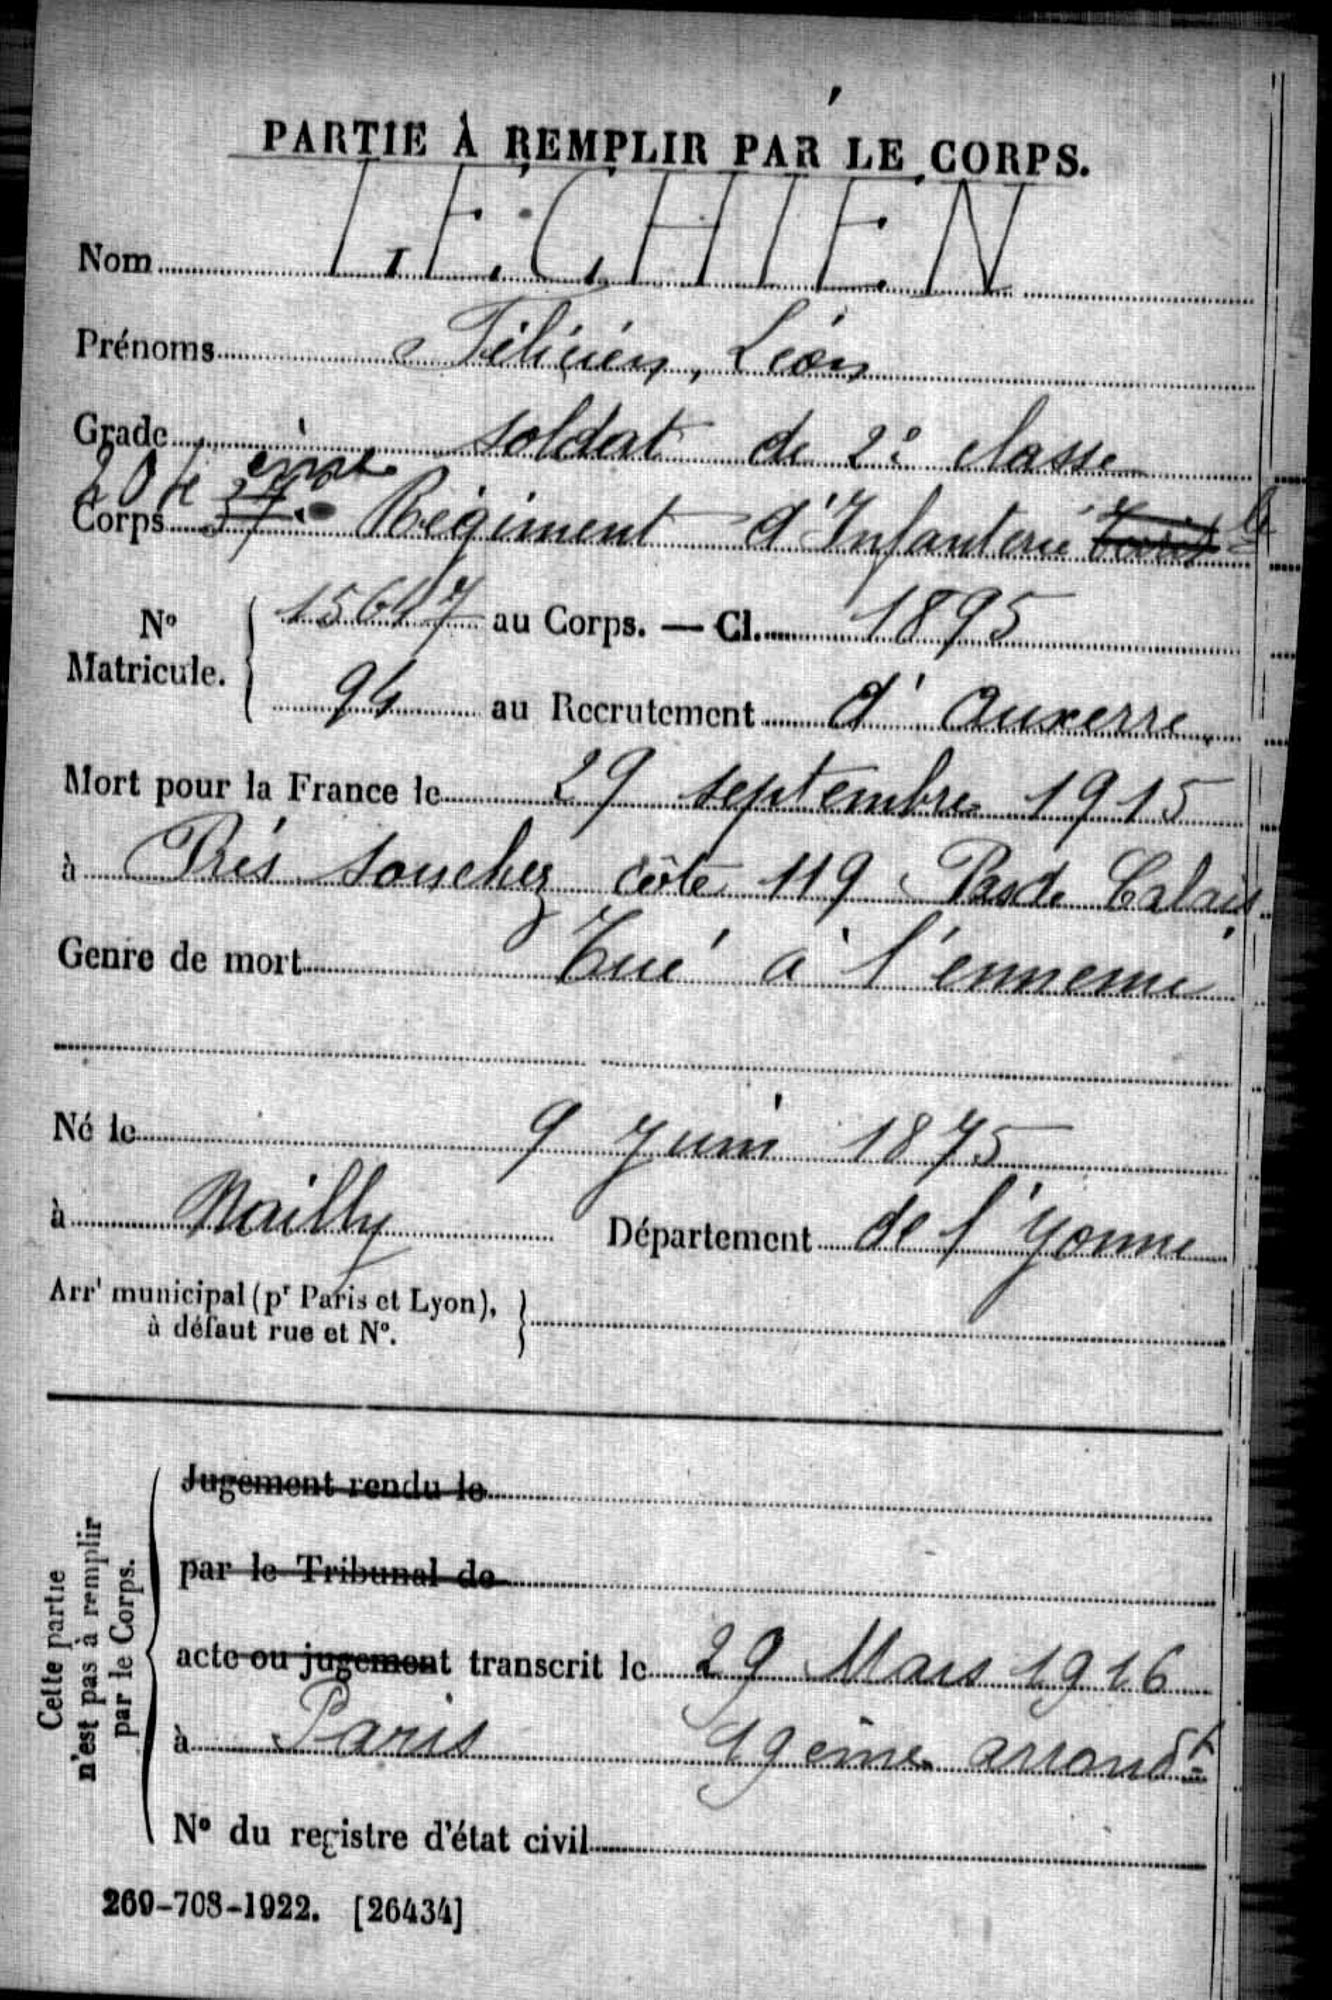 PARTIE À REMPLIR PAR LE CORPS.
Nom LECHIEN
Prénoms Félicien, Léon
Grade soldat de 2e classe
204 ème
Corps 37. Régiment d'Infanterie Territle
No Matricule. 15647 au Corps. — Cl. 1895
94 au Recrutement d'Auxerre.
Mort pour la France le 29 septembre 1915
à Près Souchez côte 119 Pas de Calais
Genre de mort Tué à l'ennemi
Né le 9 Juin 1875
à Mailly Département de l'Yonne
Arrt municipal (pr Paris et Lyon),
à défaut rue et No.
Cette partie
n'est pas à remplir
par le Corps.
Jugement rendu le
par le Tribunal de
acte ou jugement transcrit le 29 Mars 1916
à Paris 19ème arrondt
No du registre d'état civil
269-708-1922. [26434]